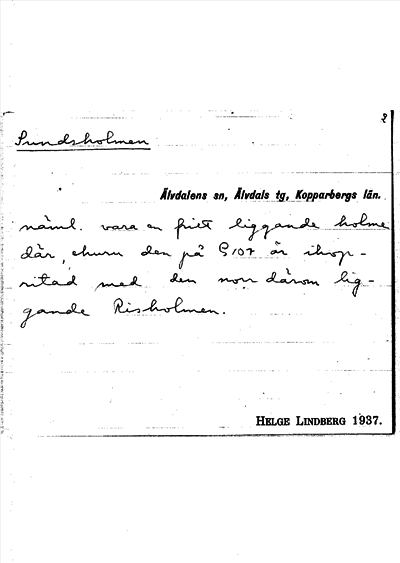 2
Sundsholmen
Älvdalens sn, Älvdals tg, Kopparbergs län.
näml. vara en fritt liggande holme
där, ehuru den på G107 är ihop-
ritad med den norr därom lig-
gande Risholmen.
HELGE LINDBERG 1937.